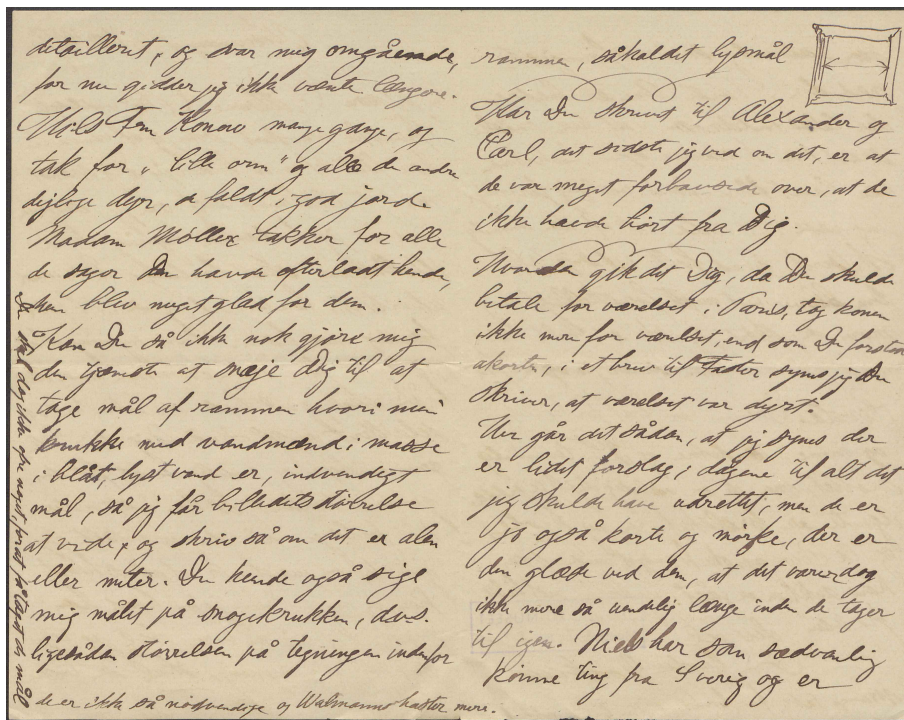 detailleret, og svar mig omgående,
for nu gidder jeg ikke vænte længere.
Hils Fru Konow mange gange, og
tak for „lille orm" og alle de andre
dejlige dyr, de faldt i god jord.
Madam Møller takker for alle
de sager Du havde efterladt hende,
hun blev meget glad for dem.
Kan Du så ikke nok gjøre mig
den tjeneste at snøje Dig til at
tage mål af rammen hvori min
krukke med vandmænd i masse
i blåt, lyst vand er, indvendigt
mål, så jeg får billedets størrelse
at vide, og skriv så om det er alen
eller meter. Du kunde også sige
mig målet på snogekrukken, d.v.s.
ligesådan størrelsen på tegningen indenfor
de er ikke så nødvendige og haster mere.
Du skal dog ikke ofre noget, forat få taget de mål
rammen, såkaldet lysmål
Har Du skrevet til Alexander og
Carl, det sidste jeg ved om det, er at
de var meget forbavsede over, at de
ikke havde hørt fra Dig.
Hvordan gik det Dig, da Du skulde
betale for værelset i Paris, tog konen
ikke mere for værelset, end som Du forstod
akorten, i et brev til Faster synes jeg Du
skriver, at værelset var dyrt.
Her går det sådan, at jeg synes der
er lidet forslag i dagene til alt det
jeg skulde have udrettet, men de er
jo også korte og mørke, der er
den glæde ved dem, at det varer dog
ikke mere så uendelig længe inden de tager
til igen. Niels har som sædvanlig
kønne ting fra Sverig og er